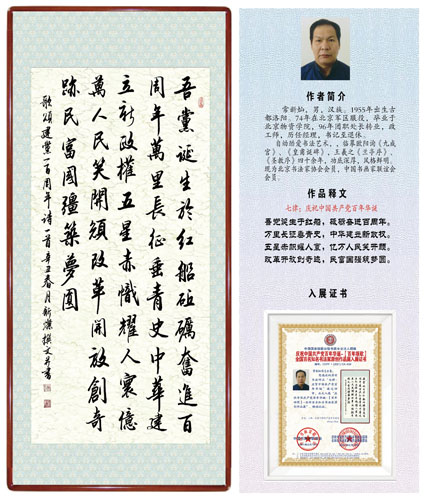 吾黨诞生於红船砥礪奮進百
周年萬里長征垂青史中華建
立新政權五星赤幟耀人寰億
萬人民笑開顔改革開放創奇
跡民富國疆築夢圆
歌頌建黨一百周年诗一首辛丑春月新燦撰文并書
作者简介
常新灿,男,汉族。1955年出生古
都洛阳。74年在北京军区服役,毕业于
北京物资学院,96年团职处长转业,政
工师,历任经理,书记至退休。
自幼酷爱书法艺术,,临摹欧阳洵《九成
宫》、《皇甫诞碑》,王羲之《兰亭序》、
《圣教序》四十余年,功底深厚,风格鲜明。
现为北京书法家协会会员,中国书画家联谊会
会员。
作品释文
七律:庆祝中国共产党百年华诞
吾党诞生于红船,砥砺奋进百周年。
万里长征垂青史,中华建立新政权。
五星赤帜耀人寰,亿万人民笑开颜。
改革开放创奇迹,民富国强筑梦圆。
入展证书
庆祝中国共产党百年华诞·【百年颂歌】
全国百名知名书法家原创作品展入展证书